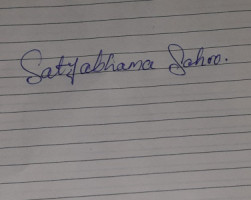 Satyabhama Sahoo.